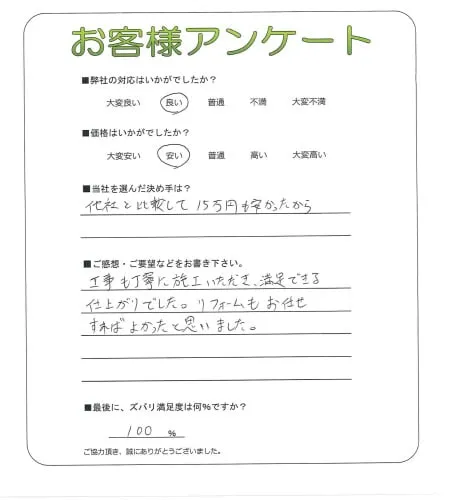 お客様アンケート
■弊社の対応はいかがでしたか?
大変良い 良い 普通 不満 大変不満
■価格はいかがでしたか?
大変安い 安い 普通 高い 大変高い
■当社を選んだ決め手は?
他社と比較して15万円も安かったから
■ご感想・ご要望などをお書き下さい。
工事も丁寧に施工いただき、満足できる
仕上がりでした。リフォームもお任せ
すればよかったと思いました。
■最後に、ズバリ満足度は何%ですか?
100 %
ご協力頂き、誠にありがとうございました。